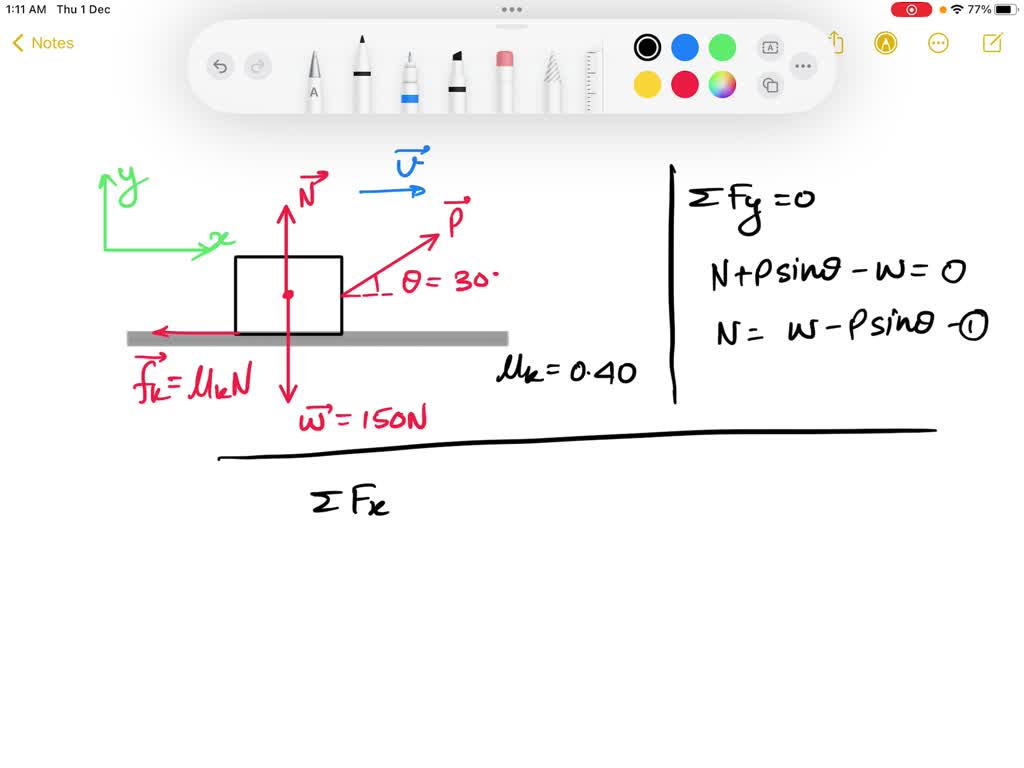 1:11 AM Thu 1 Dec
77%
Notes
A
A
y
x
N⃗
v⃗
P⃗
θ = 30°
f⃗k = μkN
w⃗ = 150N
μk = 0.40
ΣFy = 0
N + P sinθ - w = 0
N = w - P sinθ - ①
ΣFx